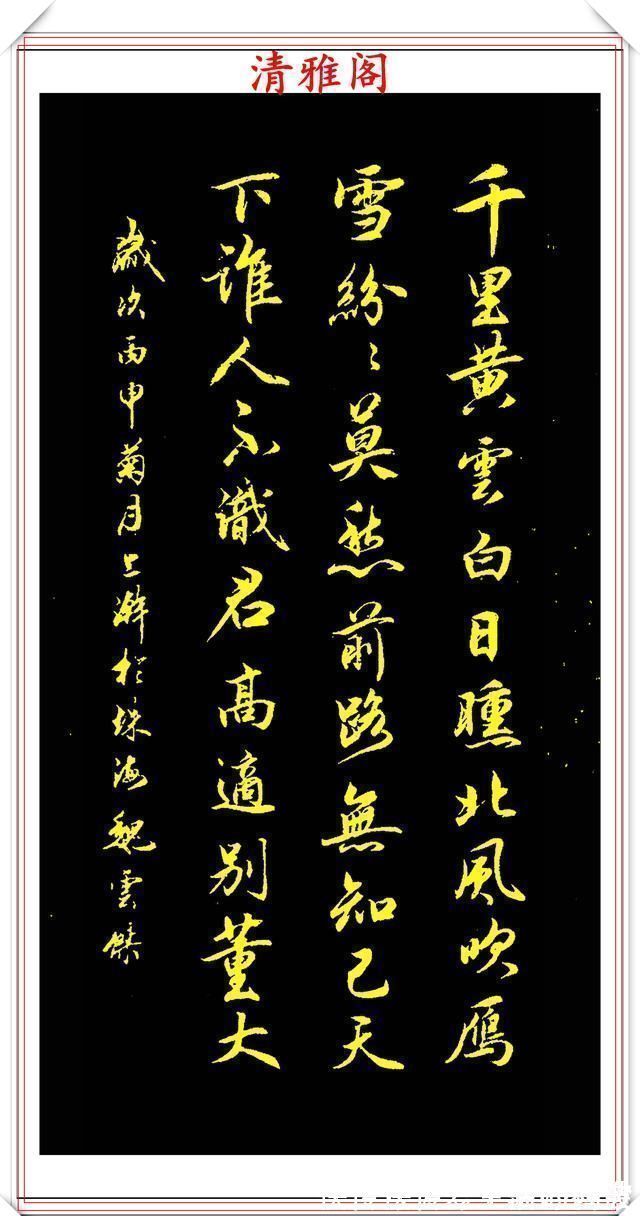 清雅阁
千里黄雲白日曛北風吹鴈
雪紛〻莫愁前路無知己天
下誰人不識君高適别董大
歲次丙申菊月上澣於珠海魏雲傑